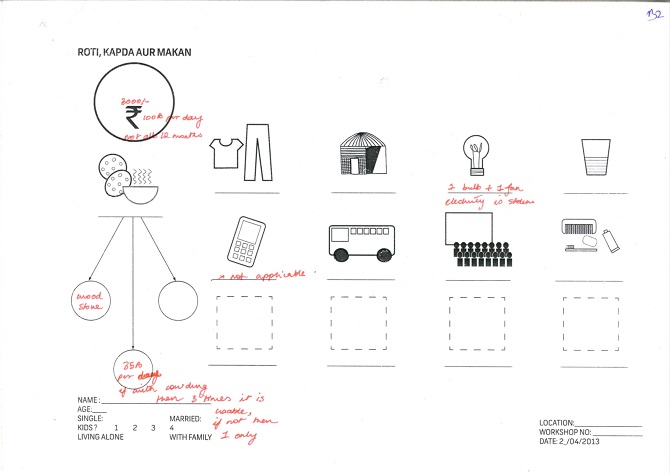 B2
ROTI, KAPDA AUR MAKAN
3000/-
₹
100Rs per day
not all 12 months
1 bulb + 1 fan
electricity is stolen
not applicable
wood
stove
35Rs
per day
if with cowdung
then 3 times it is
usable,
if not then
1 only
NAME:
AGE:
SINGLE: MARRIED:
KIDS ? 1 2 3 4
LIVING ALONE WITH FAMILY
LOCATION:
WORKSHOP NO:
DATE: 2_/04/2013